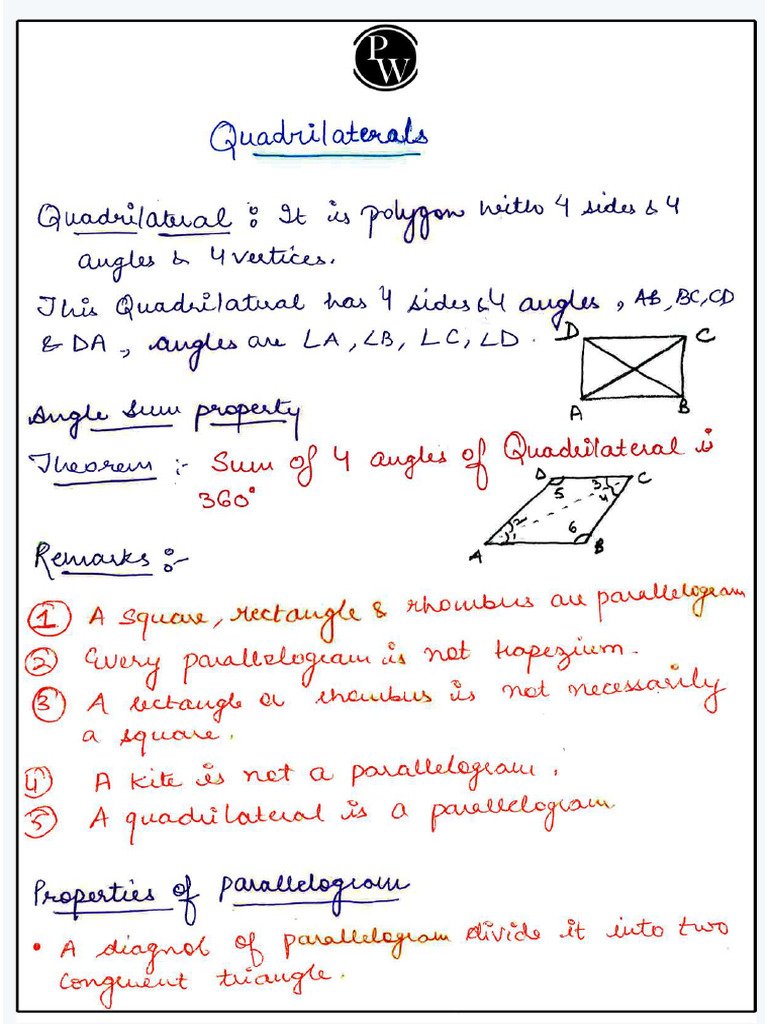 PW
Quadrilaterals
Quadrilateral : It is polygon with 4 sides & 4
angles & 4 vertices.
This Quadrilatural has 4 sides & 4 angles , AB, BC, CD
& DA , angles are ∠A , ∠B, ∠C, ∠D .
D C
A B
Angle Sum property
Theorem :- Sum of 4 angles of Quadrilateral is
360°
D C
5 3 4
2 1 6
A B
Remarks :-
① A square, rectangle & rhombus are parallelogram
② Every parallelogram is not trapezium.
③ A rectangle or rhombus is not necessarily
a square.
④ A kite is not a parallelogram.
⑤ A quadrilateral is a parallelogram
Properties of parallelogram
• A diagnol of parallelogram divide it into two
congruent triangle.